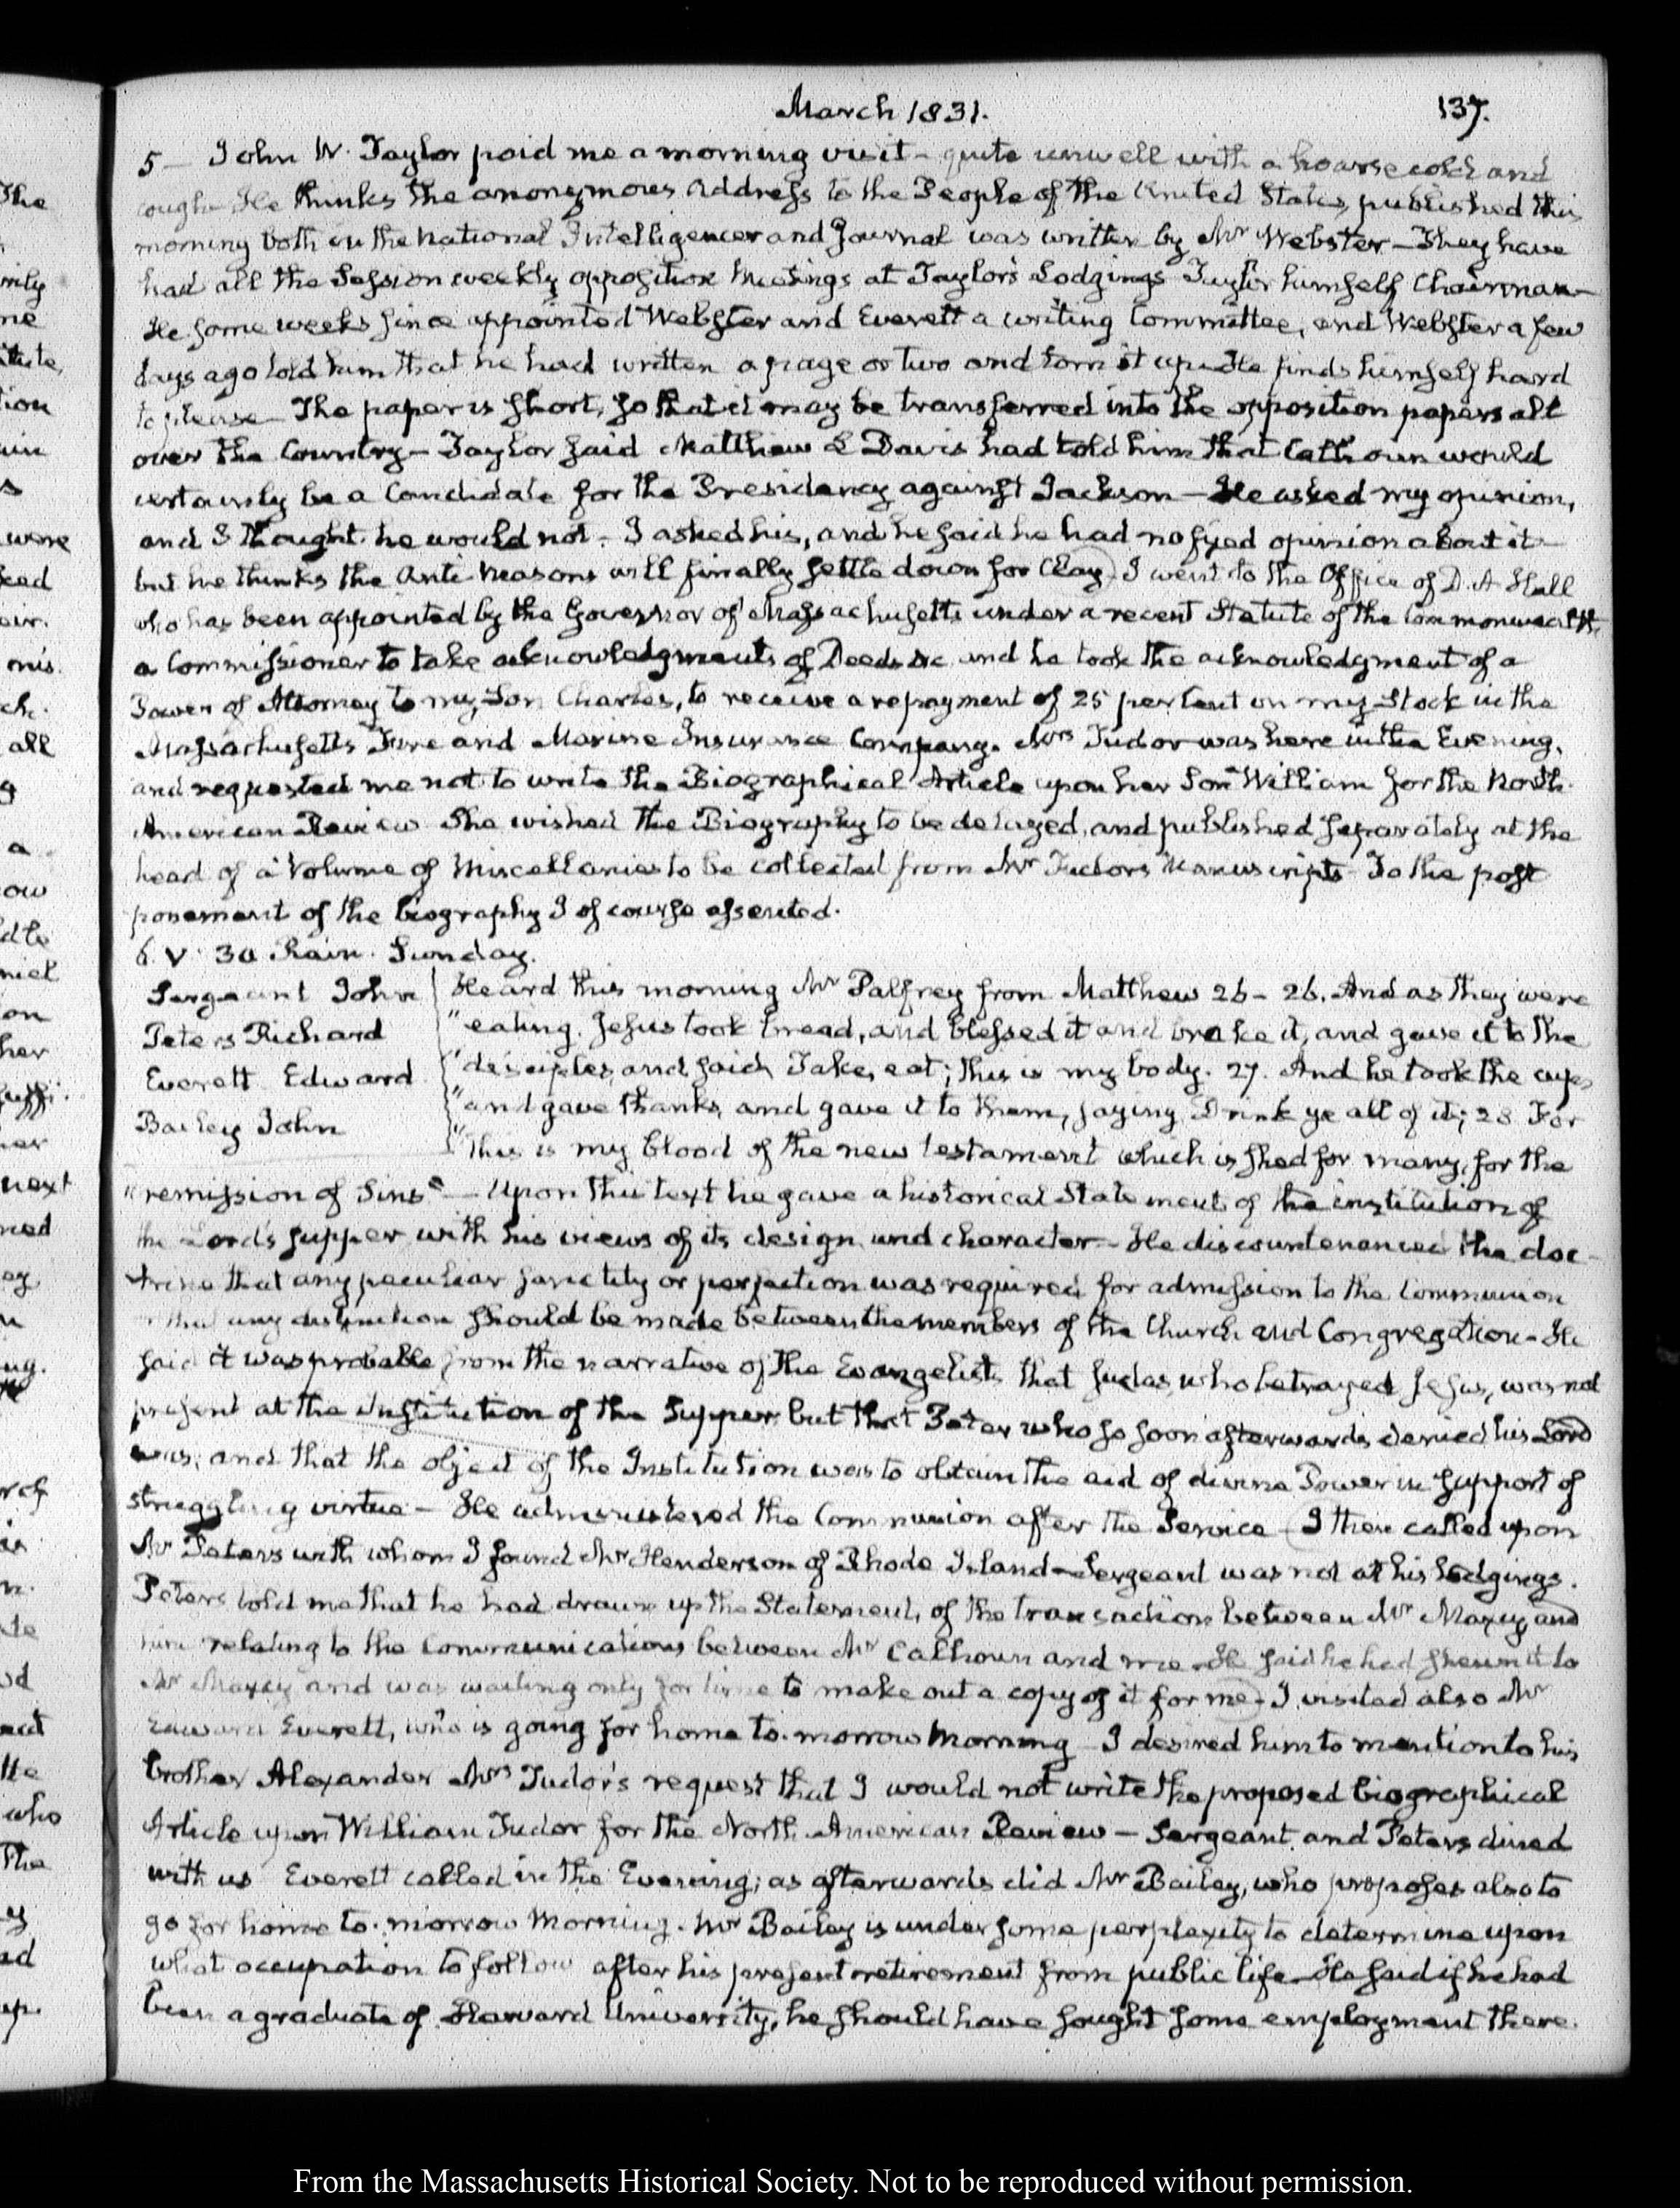 March 1831.
137.
5 — John W. Taylor paid me a morning visit – quite unwell with a hoarse cold and
cough – He thinks the anonymous Address to the People of the United States, published this
morning both in the National Intelligencer and Journal was written by Mr Webster – They have
had all the Session weekly opposition Meetings at Taylor's Lodgings Taylor himself Chairman –
He some weeks since appointed Webster and Everett a writing Committee, and Webster a few
days ago told him that he had written a page or two and torn it up – He finds himself hard
to please – The paper is short, so that it may be transferred into the opposition papers all
over the Country – Taylor said Matthew L Davis had told him that Calhoun would
certainly be a Candidate for the Presidency against Jackson – He asked my opinion,
and I thought he would not – I asked his, and he said he had no fixed opinion about it –
but he thinks the Anti-Masons will finally settle down for Clay) I went to the Office of D. A Hall
who has been appointed by the Governor of Massachusetts under a recent Statute of the Commonwealth
a Commissioner to take acknowledgments of Deeds &c and he took the acknowledgment of a
Power of Attorney to my Son Charles, to receive a repayment of 25 per Cent on my Stock in the
Massachusetts Fire and Marine Insurance Company. Mrs Tudor was here in the Evening,
and requested me not to write the Biographical Article upon her Son William for the North
American Review She wished the Biography to be delayed, and published separately at the
head of a Volume of Miscellanies to be collected from Mr Tudors Manuscripts – To the post
ponement of the biography I of course assented.
6. V. 30 Rain. Sunday.
Sergeant John
Peters Richard
Everett Edward
Bailey John
Heard this morning Mr Palfrey from Matthew 26 – 26. And as they were
"eating. Jesus took bread, and blessed it and brake it, and gave it to the
"disciples, and said, Take, eat; this is my body. 27. And he took the cup,
"and gave thanks, and gave it to them, saying Drink ye all of it; 28 For
"this is my blood of the new testament which is shed for many, for the
"remission of Sins" – Upon this text he gave a historical Statement of the institution of
the Lord's supper with his views of its design and character – He discountenanced the doc-
trine that any peculiar sanctity or perfection was required for admission to the Communion
or that any distinction should be made between the members of the Church and Congregation – He
said it was probable from the narrative of the Evangelists that Judas, who betrayed Jesus, was not
present at the Institution of the Supper but that Peter who so soon afterwards denied his Lord
was; and that the object of the Institution was to obtain the aid of divine Power in support of
struggling virtue – He administered the Communion after the Service – (I then called upon
Mr Peters with whom I found Mr Henderson of Rhode Island – Sergeant was not at his lodgings.
Peters told me that he had drawn up the Statement, of the transaction between Mr Maxcy and
him relating to the Communications between Mr Calhoun and me – He said he had shewn it to
Mr Maxcy and was waiting only for time to make out a copy of it for me) – I visited also Mr
Edward Everett, who is going for home to-morrow Morning – I desired him to mention to his
brother Alexander Mrs Tudor's request that I would not write the proposed biographical
Article upon William Tudor for the North American Review – Sergeant and Peters dined
with us Everett called in the Evening; as afterwards did Mr Bailey, who proposes also to
go for home to-morrow Morning. Mr Bailey is under some perplexity to determine upon
what occupation to follow after his present retirement from public life – He said if he had
been a graduate of Harvard University, he should have sought some employment there.
From the Massachusetts Historical Society. Not to be reproduced without permission.